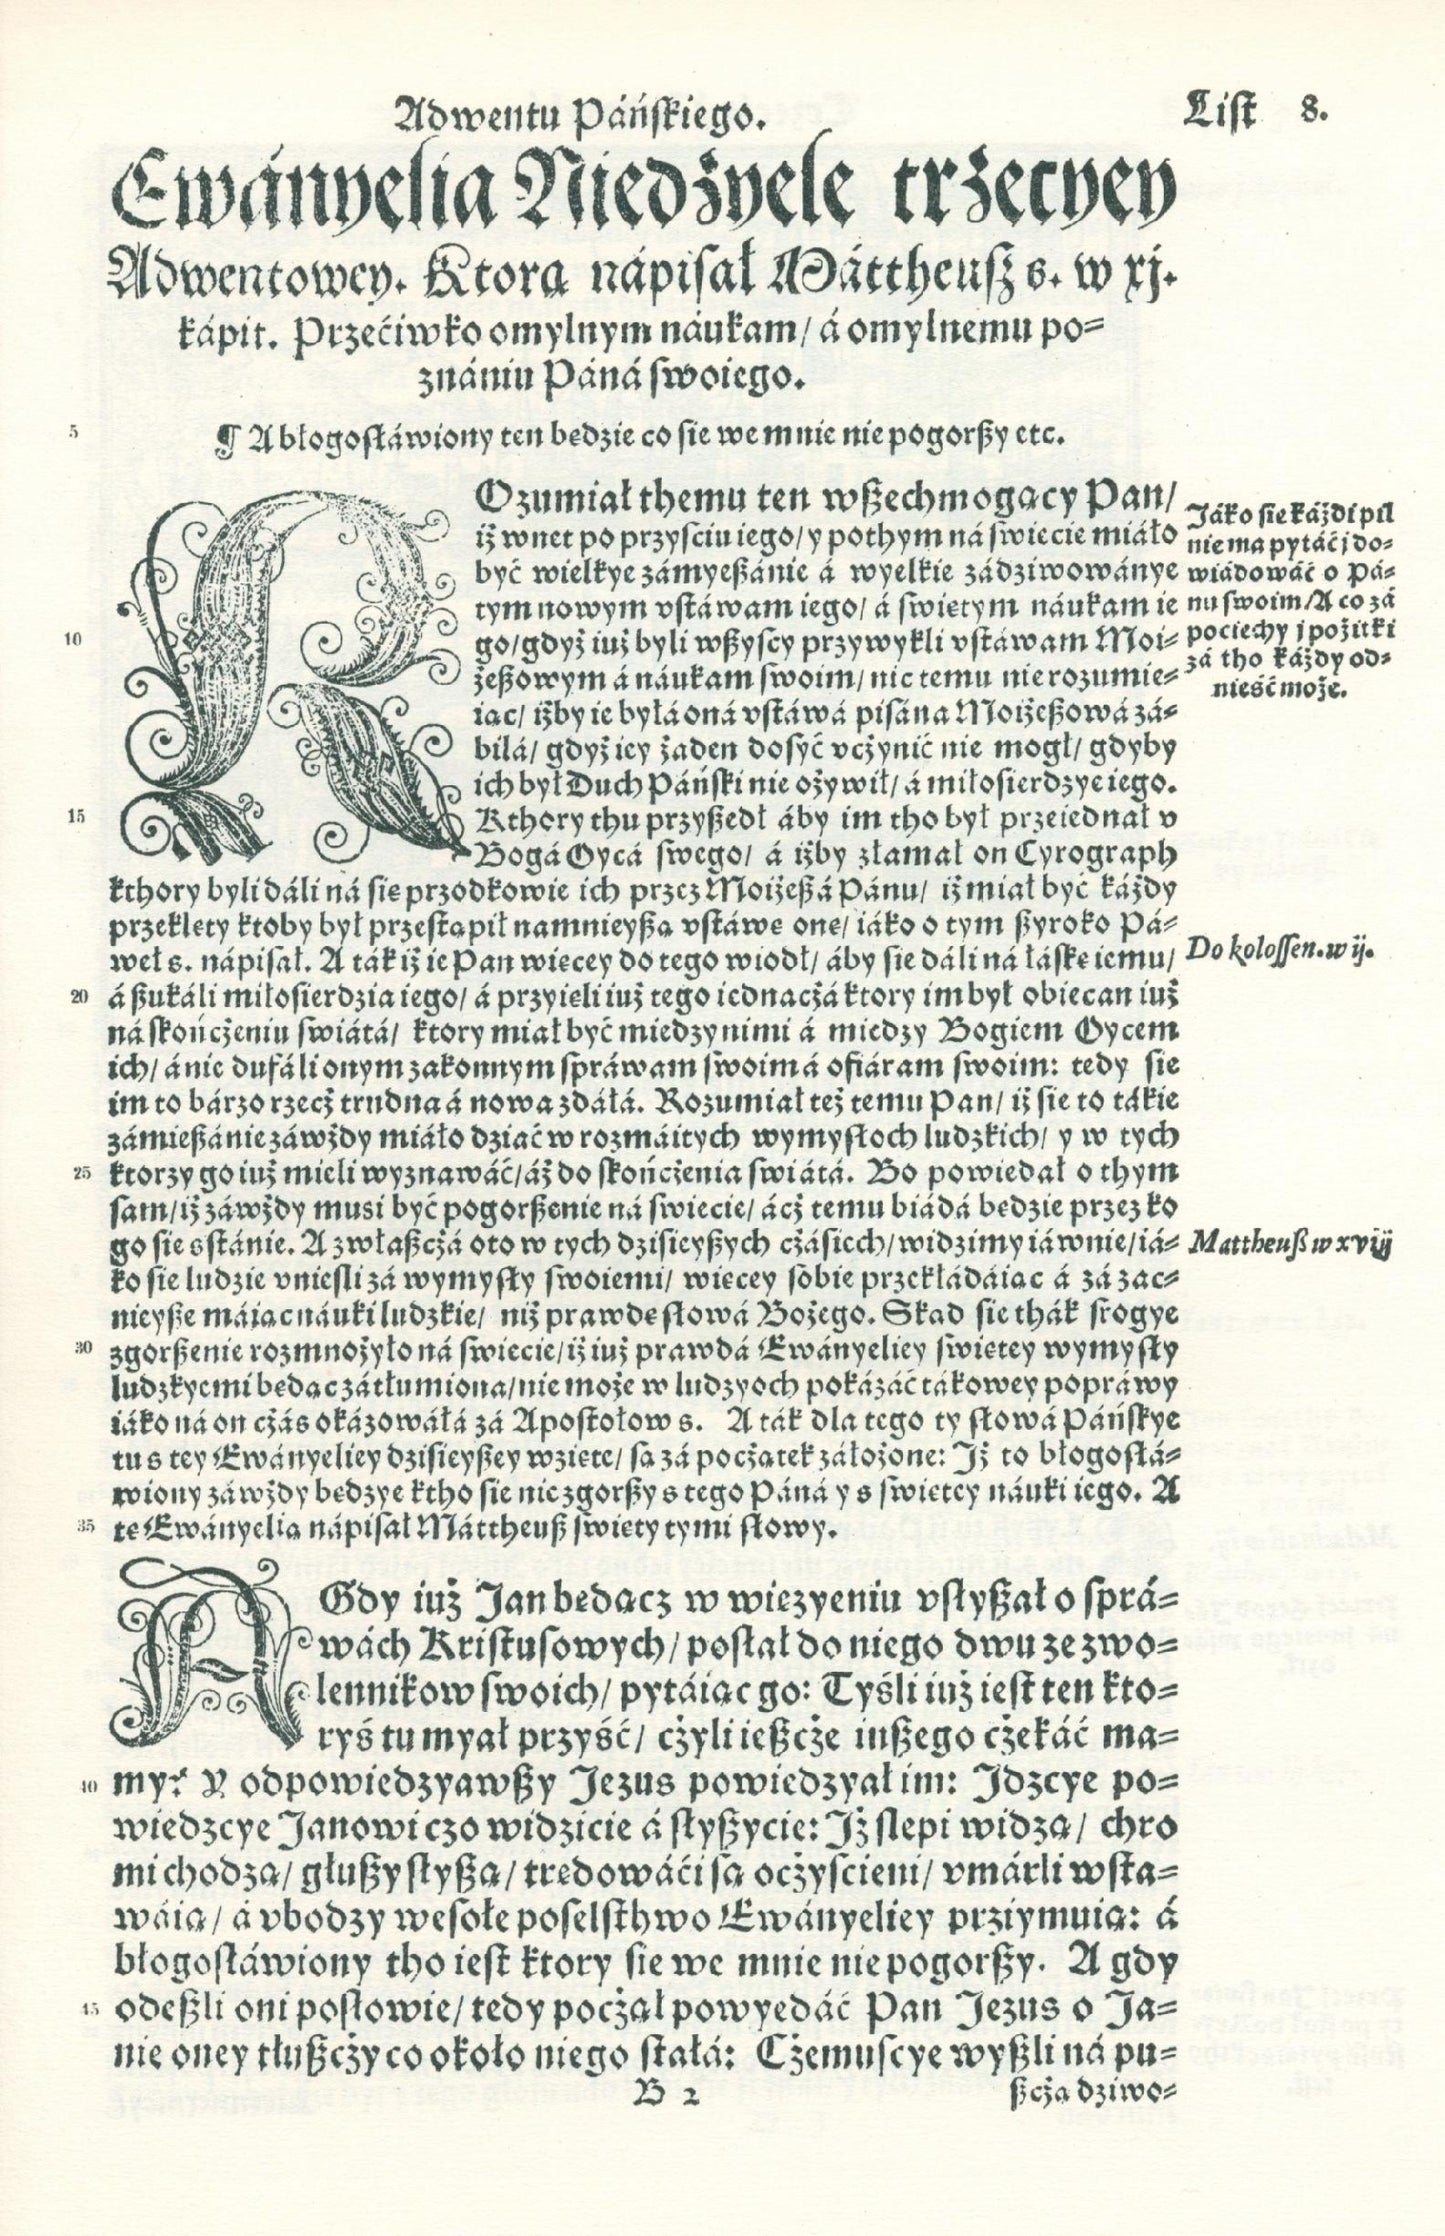 Adwentu Páńskiego.
List 8.
Ewányelia Niedźyele trzecyey
Adwentowey. Ktorą nápisał Máttheusz s. w xj.
kápit. Przećiwko omylnym náukam/ á omylnemu po=
znániu Páná swoiego.
5
¶ A błogosłáwiony ten będzie co sie we mnie nie pogorszy etc.
ROzumiał themu ten wszechmogący Pan/
iż wnet po przysciu iego/ y pothym ná świecie miáło
być wielkye zámyeszánie á wyelkie zádziwowánye
tym nowym vstáwam iego/ á świętym náukam ie
10
go/ gdyż iuż byli wszyscy przywykli vstáwam Moi=
żeszowym á náukam swoim/ nic temu nie rozumie=
iąc/ iżby ie byłá oná vstáwá pisána Moiżeszowá zá=
biłá/ gdyż iey żaden dosyć vczynić nie mogł/ gdyby
ich był Duch Páński nie ożywił/ á miłosierdzye iego.
15
Kthory thu przyszedł áby im tho był przeiednał v
Bogá Oycá swego/ á iżby złamał on Cyrograph
kthory byli dáli ná się przodkowie ich przez Moiżeszá Pánu/ iż miał być káżdy
przeklęty ktoby był przestąpił namnieyszą vstáwę onę/ iáko o tym szyroko Pá=
weł s. nápisał. A ták iż ie Pan więcey do tego wiodł/ áby sie dáli ná łáskę iemu/
20
á szukáli miłosierdzia iego/ á przyięli iuż tego iednaczá ktory im był obiecan iuż
ná skończeniu świátá/ ktory miał być miedzy nimi á miedzy Bogiem Oycem
ich/ á nie dufáli onym zakonnym spráwam swoim á ofiáram swoim: tedy sie
im to bárzo rzecz trudna á nowa zdáłá. Rozumiał też temu Pan/ iż sie to tákie
zámieszánie záwżdy miáło dziać w rozmáitych wymysłoch ludzkich/ y w tych
25
ktorzy go iuż mieli wyznawáć/ áż do skończenia świátá. Bo powiedał o thym
sam/ iż záwżdy musi być pogorszenie ná świecie/ ácz temu biádá będzie przez ko
go sie sstánie. A zwłaszczá oto w tych dzisieyszych czásiech/ widzimy iáwnie/ iá=
ko sie ludzie vnieśli zá wymysły swoiemi/ więcey sobie przekłádáiąc á zá zac=
nieysze máiąc náuki ludzkie/ niż prawdę słowá Bożego. Skąd sie thák srogye
30
zgorszenie rozmnożyło ná świecie/ iż iuż prawdá Ewányeliey świętey wymysły
ludzkyemi będąc zátłumiona/ nie może w ludzyoch pokázáć tákowey popráwy
iáko ná on czás okázowáłá zá Apostołow s. A ták dla tego ty słowá Páńskye
tu s tey Ewányeliey dzisieyszey wzięte/ są zá początek záłożone: Iż to błogosłá=
wiony záwżdy będzye ktho sie nie zgorszy s tego Páná y s świętey náuki iego. A
35
tę Ewányelią nápisał Máttheusz święty tymi słowy.
Jáko sie káżdi pil
nie ma pytáć j do=
wiádowáć o Pá=
nu swoim/ A co zá
pociechy j pożitki
zá tho káżdy od=
nieść może.
Do kolossen. w ij.
Mattheusz w xviij
A Gdy iuż Jan będącz w więzyeniu vsłyszał o sprá=
wách Kristusowych/ posłał do niego dwu ze zwo=
lennikow swoich/ pytáiąc go: Tyśli iuż iest ten kto=
ryś tu myał przyść/ czyli ieszcze inszego czekáć ma=
40
my? Y odpowiedzyawszy Jezus powiedzyał im: Jdzcye po=
wiedzcye Janowi czo widzicie á słyszycie: Iż slepi widzą/ chro
mi chodzą/ głuszy słyszą/ trędowáći są oczyscieni/ vmárli wsta=
wáią/ á vbodzy wesołe poselsthwo Ewányeliey prziymuią: á
błogosłáwiony tho iest ktory sie we mnie nie pogorszy. A gdy
45
odeszli oni posłowie/ tedy począł powyedáć Pan Jezus o Ja=
nie oney tłuszczy co około niego stałá: Czemuscye wyszli ná pu=
B 2
szczą dziwo=